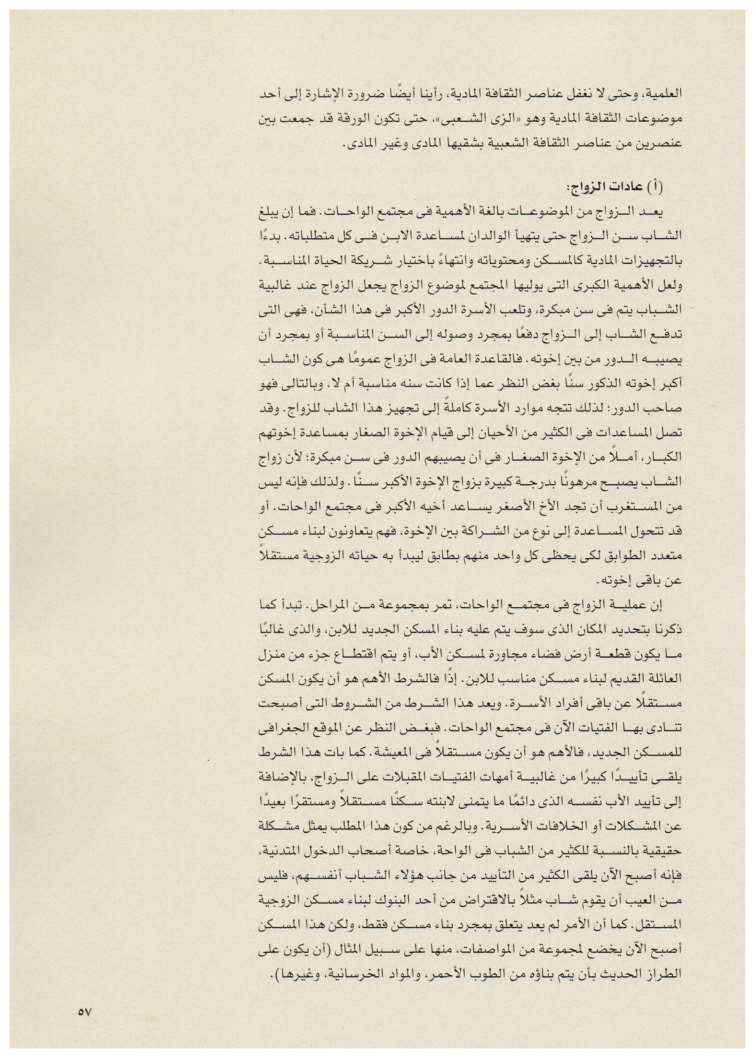 العلمية، وحتى لا نغفل عناصر الثقافة المادية، رأينا أيضًا ضرورة الإشارة إلى أحد
موضوعات الثقافة المادية وهو «الزى الشعبى»، حتى تكون الورقة قد جمعت بين
عنصرين من عناصر الثقافة الشعبية بشقيها المادى وغير المادى.
(أ) عادات الزواج:
يعد الزواج من الموضوعات بالغة الأهمية فى مجتمع الواحات. فما إن يبلغ
الشاب سن الزواج حتى يتهيأ الوالدان لمساعدة الابن فى كل متطلباته. بدءًا
بالتجهيزات المادية كالمسكن ومحتوياته وانتهاءً باختيار شريكة الحياة المناسبة.
ولعل الأهمية الكبرى التى يوليها المجتمع لموضوع الزواج يجعل الزواج عند غالبية
الشباب يتم فى سن مبكرة، وتلعب الأسرة الدور الأكبر فى هذا الشأن، فهى التى
تدفع الشاب إلى الزواج دفعًا بمجرد وصوله إلى السن المناسبة أو بمجرد أن
يصيبه الدور من بين إخوته. فالقاعدة العامة فى الزواج عمومًا هى كون الشاب
أكبر إخوته الذكور سنًا بغض النظر عما إذا كانت سنه مناسبة أم لا، وبالتالى فهو
صاحب الدور؛ لذلك تتجه موارد الأسرة كاملةً إلى تجهيز هذا الشاب للزواج. وقد
تصل المساعدات فى الكثير من الأحيان إلى قيام الإخوة الصغار بمساعدة إخوتهم
الكبار، أملًا من الإخوة الصغار فى أن يصيبهم الدور فى سن مبكرة؛ لأن زواج
الشاب يصبح مرهونًا بدرجة كبيرة بزواج الإخوة الأكبر سنًا. ولذلك فإنه ليس
من المستغرب أن تجد الأخ الأصغر يساعد أخيه الأكبر فى مجتمع الواحات. أو
قد تتحول المساعدة إلى نوع من الشراكة بين الإخوة، فهم يتعاونون لبناء مسكن
متعدد الطوابق لكى يحظى كل واحد منهم بطابق ليبدأ به حياته الزوجية مستقلاً
عن باقى إخوته.
إن عملية الزواج فى مجتمع الواحات، تمر بمجموعة من المراحل. تبدأ كما
ذكرنا بتحديد المكان الذى سوف يتم عليه بناء المسكن الجديد للابن، والذى غالبًا
ما يكون قطعة أرض فضاء مجاورة لمسكن الأب، أو يتم اقتطاع جزء من منزل
العائلة القديم لبناء مسكن مناسب للابن. إذًا فالشرط الأهم هو أن يكون المسكن
مستقلًا عن باقى أفراد الأسرة. ويعد هذا الشرط من الشروط التى أصبحت
تنادى بها الفتيات الآن فى مجتمع الواحات. فبغض النظر عن الموقع الجغرافى
للمسكن الجديد، فالأهم هو أن يكون مستقلاً فى المعيشة. كما بات هذا الشرط
يلقى تأييدًا كبيرًا من غالبية أمهات الفتيات المقبلات على الزواج، بالإضافة
إلى تأييد الأب نفسه الذى دائمًا ما يتمنى لابنته سكنًا مستقلاً ومستقرًا بعيدًا
عن المشكلات أو الخلافات الأسرية. وبالرغم من كون هذا المطلب يمثل مشكلة
حقيقية بالنسبة للكثير من الشباب فى الواحة، خاصة أصحاب الدخول المتدنية،
فإنه أصبح الآن يلقى الكثير من التأييد من جانب هؤلاء الشباب أنفسهم، فليس
من العيب أن يقوم شاب مثلاً بالاقتراض من أحد البنوك لبناء مسكن الزوجية
المستقل. كما أن الأمر لم يعد يتعلق بمجرد بناء مسكن فقط، ولكن هذا المسكن
أصبح الآن يخضع لمجموعة من المواصفات، منها على سبيل المثال (أن يكون على
الطراز الحديث بأن يتم بناؤه من الطوب الأحمر، والمواد الخرسانية، وغيرها).
٥٧